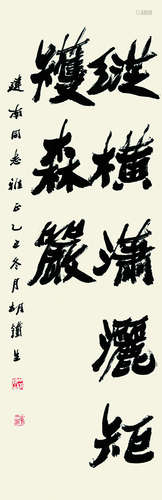 縱橫瀟灑矩
矱森嚴
建南同志雅正乙丑冬月胡鐵生